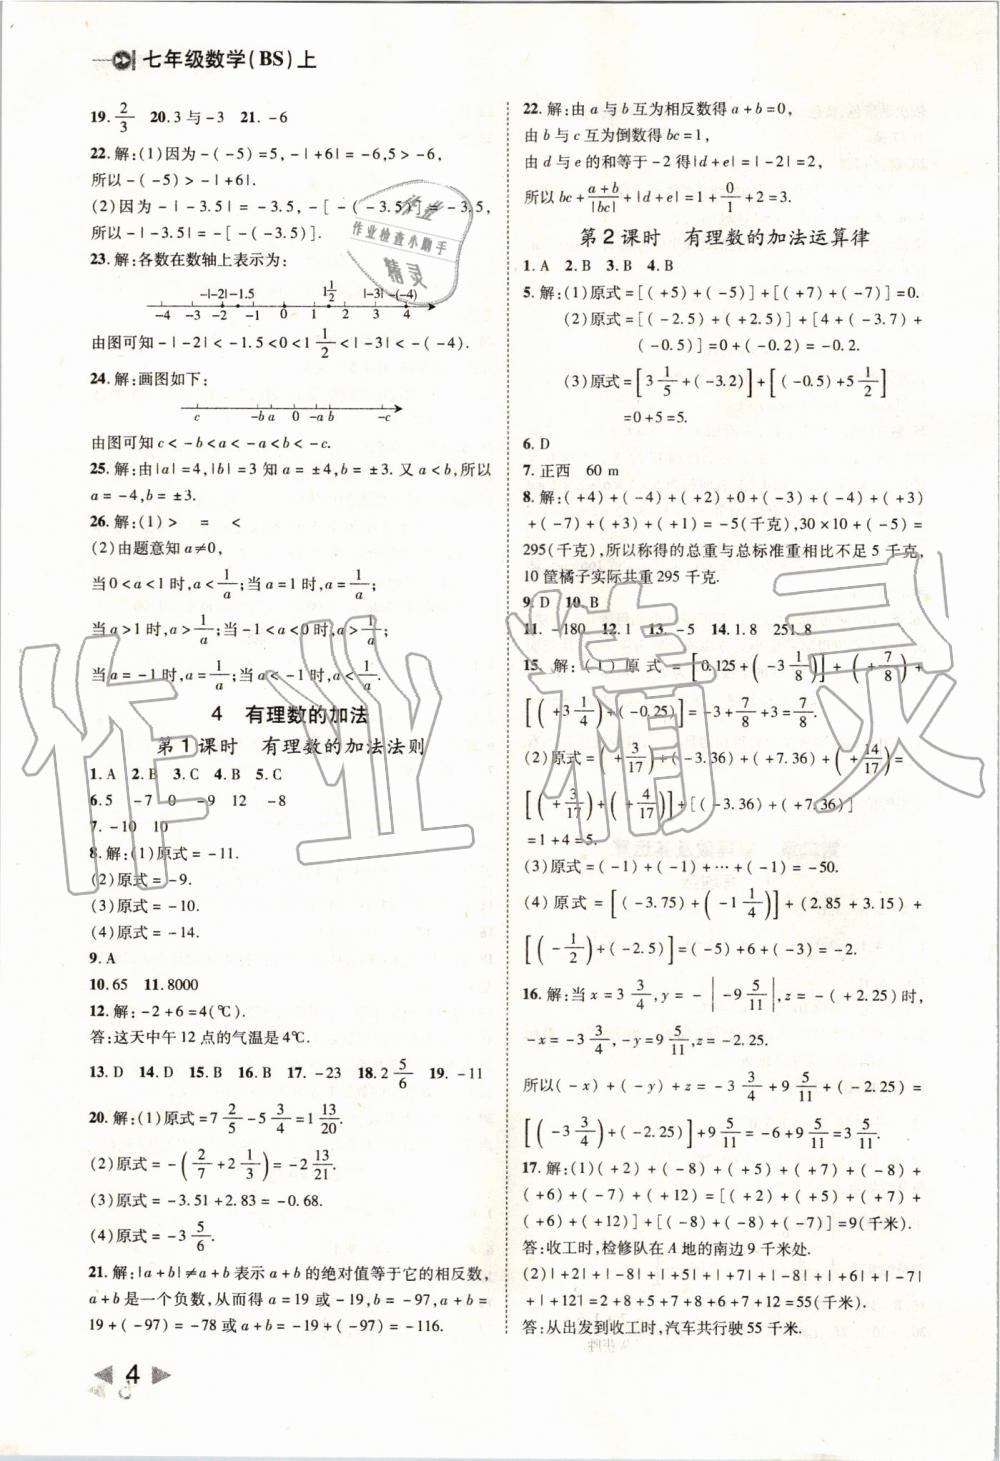 七年级数学(BS)上
19. 2/3 20.3与-3 21. -6
22.解:(1)因为-(-5)=5,-|+6|=-6,5>-6,
所以-(-5)>-|+6|.
(2)因为-|-3.5|=-3.5,-[-(-3.5)]=-3.5,
所以-|-3.5|=-[-(-3.5)].
23.解:各数在数轴上表示为:
-|-2| -1.5 1 1/2 |-3| -(-4)
-4 -3 -2 -1 0 1 2 3 4
由图可知-|-2|<-1.5<0<1 1/2<|-3|<-(-4).
24.解:画图如下:
c -b a 0 -a b -c
由图可知c<-b<a<-a<b<-c.
25.解:由|a|=4,|b|=3知a=±4,b=±3.又a<b,所以
a=-4,b=±3.
26.解:(1)> = <
(2)由题意知a≠0,
当0<a<1时,a<1/a;当a=1时,a=1/a;
当a>1时,a>1/a;当-1<a<0时,a>1/a;
当a=-1时,a=1/a;当a<-1时,a<1/a.
4 有理数的加法
第1课时 有理数的加法法则
1. A 2. B 3. C 4. B 5. C
6.5 -7 0 -9 12 -8
7. -10 10
8.解:(1)原式=-11.
(2)原式=-9.
(3)原式=-10.
(4)原式=-14.
9. A
10.65 11.8000
12.解:-2+6=4(℃).
答:这天中午12点的气温是4℃.
13. D 14. D 15. B 16. B 17. -23 18.2 5/6 19. -11
20.解:(1)原式=7 2/5-5 3/4=1 13/20.
(2)原式=-(2/7+2 1/3)=-2 13/21.
(3)原式=-3.51+2.83=-0.68.
(4)原式=-3 5/6.
21.解:|a+b|≠a+b表示a+b的绝对值等于它的相反数,
a+b是一个负数,从而得a=19或-19,b=-97,a+b=
19+(-97)=-78或a+b=-19+(-97)=-116.
4
22.解:由a与b互为相反数得a+b=0,
由b与c互为倒数得bc=1,
由d与e的和等于-2得|d+e|=|-2|=2,
所以bc+(a+b)/|bc|+|d+e|=1+0/1+2=3.
第2课时 有理数的加法运算律
1. A 2. B 3. B 4. B
5.解:(1)原式=[(+5)+(-5)]+[(+7)+(-7)]=0.
(2)原式=[(-2.5)+(+2.5)]+[4+(-3.7)+
(-0.5)]=0+(-0.2)=-0.2.
(3)原式=[3 1/5+(-3.2)]+[(-0.5)+5 1/2]
=0+5=5.
6. D
7.正西 60 m
8.解:(+4)+(-4)+(+2)+0+(-3)+(-4)+(+3)
+(-7)+(+3)+(+1)=-5(千克),30×10+(-5)=
295(千克),所以称得的总重与总标准重相比不足5千克,
10筐橘子实际共重295千克.
9. D 10. B
11. -180 12.1 13. -5 14.1.8 251.8
15.解:(1)原式=[0.125+(-3 1/8)]+(+7/8)+
[(+3 1/4)+(-0.25)]=-3+7/8+3=7/8.
(2)原式=(+3/17)+(-3.36)+(+7.36)+(+14/17)=
[(+3/17)+(+4/17)]+[(-3.36)+(+7.36)]
=1+4=5.
(3)原式=(-1)+(-1)+…+(-1)=-50.
(4)原式=[(-3.75)+(-1 1/4)]+(2.85+3.15)+
[(-1/2)+(-2.5)]=(-5)+6+(-3)=-2.
16.解:当x=3 3/4,y=-|-9 5/11|,z=-(+2.25)时,
-x=-3 3/4,-y=9 5/11,z=-2.25.
所以(-x)+(-y)+z=-3 3/4+9 5/11+(-2.25)=
[(-3 3/4)+(-2.25)]+9 5/11=-6+9 5/11=3 5/11.
17.解:(1)(+2)+(-8)+(+5)+(+7)+(-8)+
(+6)+(-7)+(+12)=[(+2)+(+5)+(+7)+
(+6)+(+12)]+[(-8)+(-8)+(-7)]=9(千米).
答:收工时,检修队在A地的南边9千米处.
(2)|+2|+|-8|+|+5|+|+7|+|-8|+|+6|+|-7|
+|+12|=2+8+5+7+8+6+7+12=55(千米).
答:从出发到收工时,汽车共行驶55千米.
作业
作业检查小助手
精灵
作业精灵